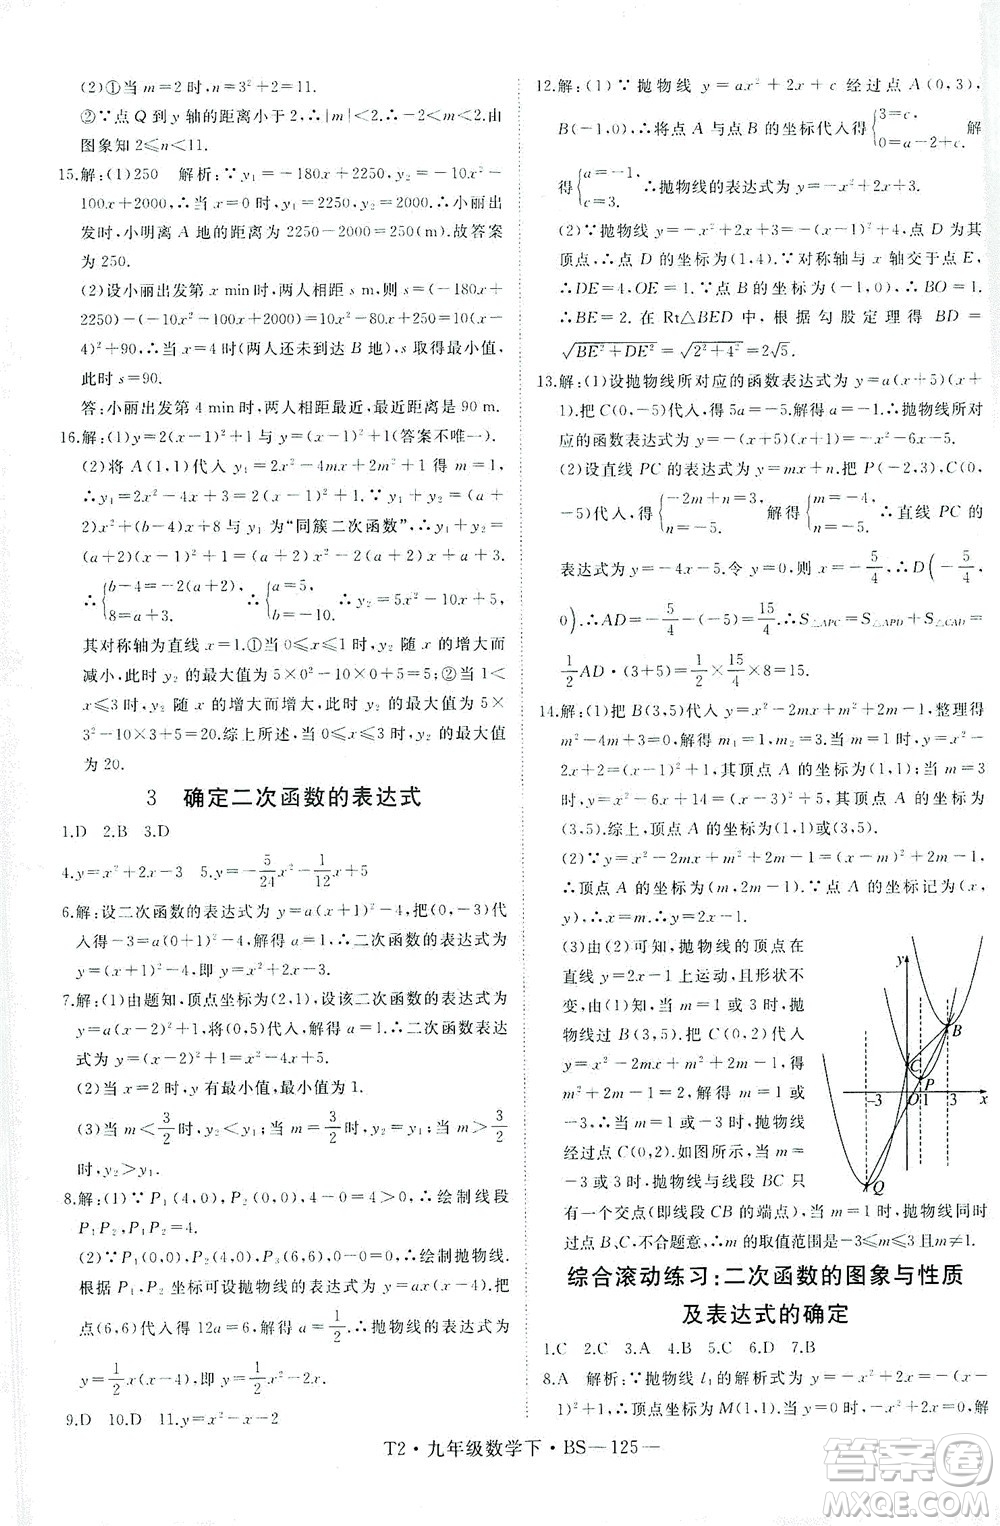 (2)①当 m=2 时,n=3²+2=11.
②∵点 Q 到 y 轴的距离小于 2,∴|m|<2.由
图象知 2≤n<11.
15.解:(1)250　解析:∵y₁=-180x+2250,y₂=-10x²-
100x+2000,∴当 x=0 时,y₁=2250,y₂=2000,∴小丽出
发时,小明离 A 地的距离为 2250-2000=250(m).故答案
为 250.
(2)设小丽出发第 x min 时,两人相距 s m,则 s=(-180x+
2250)-(-10x²-100x+2000)=10x²-80x+250=10(x-
4)²+90,∴当 x=4 时(两人还未到达 B 地),s 取得最小值,
此时 s=90.
答:小丽出发第 4 min 时,两人相距最近,最近距离是 90 m.
16.解:(1)y=2(x-1)²+1(答案不唯一).
(2)将 A(1,1)代入 y₁=2x²-4mx+2m²+1,得 m=1,
∴y₁=2x²-4x+3=2(x-1)²+1,∴y₁+y₂=(a+
2)x²+(b-4)x+8与 y₁ 为“同簇二次函数”,∴(a+2)x²+
(b-4)x+8=(a+2)(x-1)²+1=(a+2)x²-2(a+2)x+a+3.
∴{b-4=-2(a+2), 8=a+3, ∴{a=5, b=-10. ∴y₂=5x²-10x+5.
其对称轴为直线 x=1.①当 0≤x≤1 时,y₂ 随 x 的增大而
减小,此时,y₂ 的最大值为 5×0²-10×0+5=5;②当 1<
x≤3 时,y₂ 随 x 的增大而增大,此时,y₂ 的最大值为 5×
3²-10×3+5=20.综上所述,当 0≤x≤3 时,y₂ 的最大值
为 20.
3　确定二次函数的表达式
1.D　2.B　3.D
4.y=x²+2x-3　5.y=-5/24x²-1/12x+5
6.解:设二次函数的表达式为 y=a(x+1)²-4,把(0,-3)代
入得-3=a(0+1)²-4,解得 a=1.∴二次函数的表达式为
y=(x+1)²-4,即 y=x²+2x-3.
7.解:(1)由题知,顶点坐标为(2,1),设该二次函数的表达式为
y=a(x-2)²+1,将(0,5)代入,解得 a=1.∴二次函数表达
式为 y=(x-2)²+1,即 y=x²-4x+5.
(2)当 x=2 时,y 有最小值,最小值为 1.
(3)当 m<3/2时,y₁>y₂;当 m=3/2时,y₁=y₂;当 m>3/2
时,y₂>y₁.
8.解:(1)∵P₁(4,0),P₂(0,0),4-0=4>0,∴绘制线段
P₁P₂,P₁P₂=4.
(2)∵P₁(0,0),P₂(6,6),0-6=-6<0,∴绘制抛物线.
根据 P₁、P₂ 坐标可设抛物线的表达式为 y=ax(x-4),把
点(6,6)代入得 12a=6,解得 a=1/2,∴抛物线的表达式为
y=1/2x(x-4),即 y=1/2x²-2x.
9.D　10.D　11.y=x²-x-2
12.解:(1)∵抛物线 y=ax²+2x+c 经过点 A(0,3),
B(-1,0),∴将点 A 与点 B 的坐标代入得{3=c, 0=a-2+c, 解
得{a=-1, c=3. ∴抛物线的表达式为 y=-x²+2x+3.
(2)∵抛物线的表达式为 y=-x²+2x+3=-(x-1)²+4,其
顶点为 D,∴点 D 的坐标为(1,4).∵对称轴与 x 轴交于点 E,
∴DE=4,OE=1.∵点 B 的坐标为(-1,0),∴BO=1.
∴BE=2.在 Rt△BED 中,根据勾股定理得 BD=
√BE²+DE²=√2²+4²=2√5.
13.解:(1)设抛物线所对应的函数表达式为 y=a(x+5)(x+
1).把 C(0,-5)代入,得 5a=-5.解得 a=-1.∴抛物线所对
应的函数表达式为 y=-x²-6x-5.
(2)设直线 PC 的表达式为 y=mx+n.把 P(-2,3),C(0,
-5)代入得{-2m+n=3, n=-5. 解得{m=-4, n=-5. ∴直线 PC 的
表达式为 y=-4x-5.令 y=0,得 x=-5/4,∴D(-5/4,
0).∴AD=-5/4-(-5)=15/4.∴S△APC=S△APD+S△CAD=
1/2AD·(3+5)=1/2×15/4×8=15.
14.解:(1)把 B(3,5)代入 y=x²-2mx+m²+2m-1,整理得
m²-4m+3=0,解得 m₁=1,m₂=3.当 m=1 时,y=x²
-2x+2=(x-1)²+1,其顶点 A 的坐标为(1,1);当 m=
3 时,y=x²-6x+14=(x-3)²+5,其顶点 A 的坐标为
(3,5).综上,顶点 A 的坐标为(1,1)或(3,5).
(2)∵y=x²-2mx+m²+2m-1=(x-m)²+2m-1,
∴顶点 A 的坐标为(m,2m-1).∵点 A 的坐标记为(x,
y),∴x=m,∴y=2x-1.
(3)由(2)可知,抛物线的顶点在
直线 y=2x-1 上运动,且形状不
变,由(1)知,当 m=1 或 3 时,抛
物线过 B(3,5).把 C(0,2)代入
y=x²-2mx+m²+2m-1,得
m²+2m-1=2,解得 m=1 或
-3.∴当 m=1 或-3 时,抛物线
经过点 C(0,2).如图所示,当 m=
-3 或 3 时,抛物线与线段 BC 只
有一个交点(即线段 CB 的端点),当 m=1 时,抛物线同时
过点 B、C,不合题意,∴m 的取值范围是-3≤m≤3且m≠1.
y
B
C
P
O
-3
1
3
x
Q
综合滚动练习:二次函数的图象与性质
及表达式的确定
1.C　2.C　3.A　4.B　5.C　6.D　7.B
8.A　解析:∵抛物线 l₁ 的解析式为 y=x²-2x=(x-
1)²-1,∴顶点坐标为 M(1,-1).当 x²-2x=0 时,解
T2·九年级数学下·BS—125—
答案圈
MXQE.COM